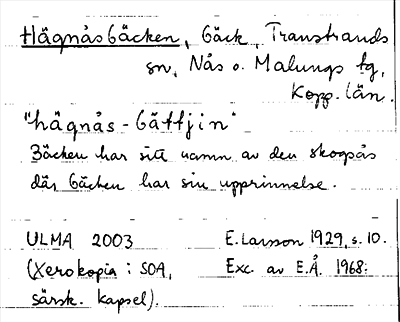 Hägnåsbäcken, bäck, Transtrands
sn, Nås o. Malungs tg,
Kopp. län.
"hägnås-bättjin"
Bäcken har sitt namn av den skogsås
där bäcken har sin upprinnelse.
ULMA 2003 E. Larsson 1929, s. 10.
(Xerokopia i SOA, Exc. av E.Å. 1968.
särsk. kapsel).